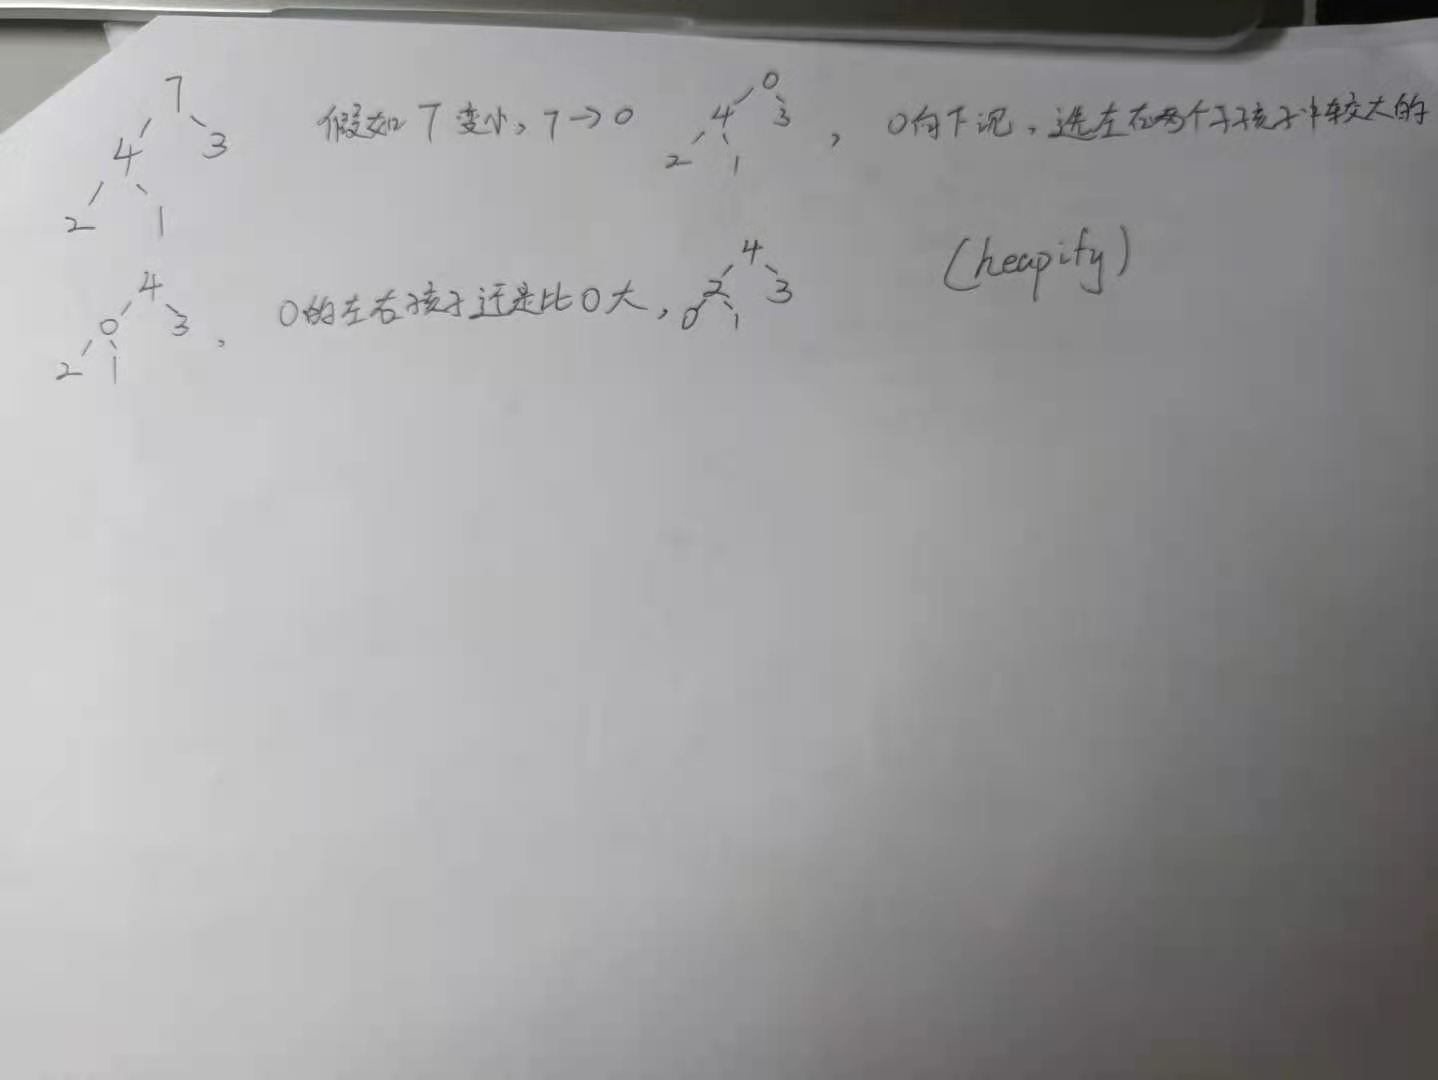 7
4 3 假如7变小,7→0 4 0 3 , 0向下沉,选左右两个子孩子中较大的
2 1 2 1
4 4 (heapify)
0 3 , 0的左右孩子还是比0大, 2 3
2 1 0 1